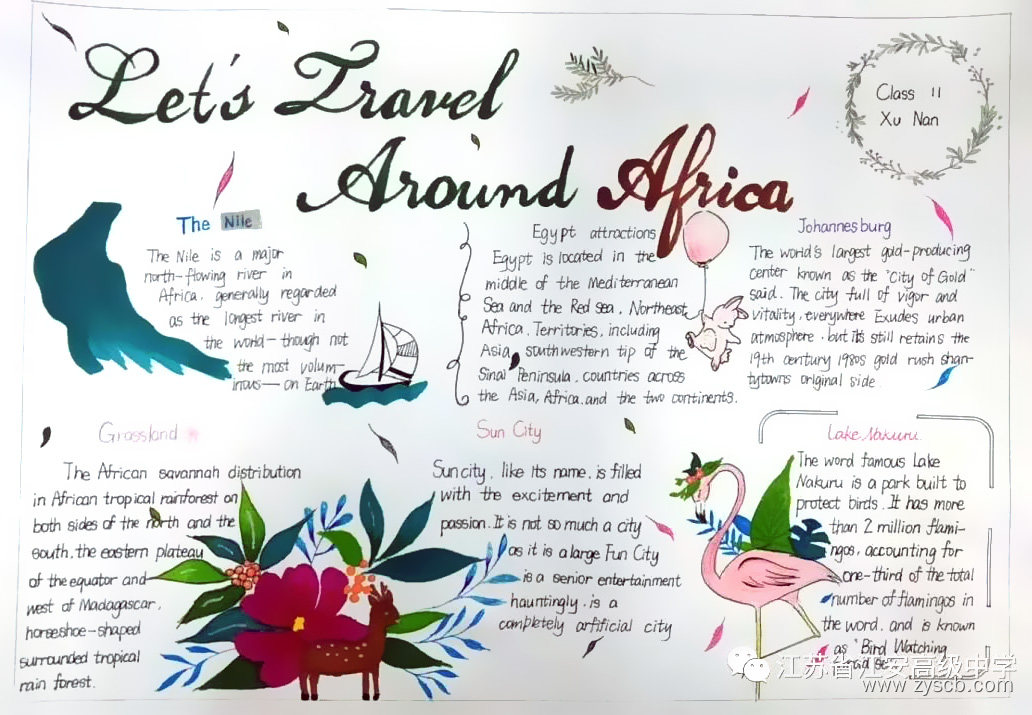 Let's Travel
Around Africa
Class 11
Xu Nan
The Nile
The Nile is a major
north-flowing river in
Africa, generally regarded
as the longest river in
the world-though not
the most volum-
inous-on Earth
Egypt attractions
Egypt is located in the
middle of the Mediterranean
Sea and the Red Sea, Northeast
Africa. Territories, including
Asia, southwestern tip of the
Sinai Peninsula, countries across
the Asia, Africa, and the two continents.
Johannesburg
The world's largest gold-producing
center known as the "City of Gold"
said. The city full of vigor and
vitality, everywhere Exudes urban
atmosphere, but its still retains the
19th century 1980s gold rush shan-
tytowns original side.
Grassland
The African savannah distribution
in African tropical rainforest on
both sides of the north and the
south, the eastern plateau
of the equator and
west of Madagascar,
horseshoe-shaped
surrounded tropical
rain forest.
Sun City
Suncity, like its name, is filled
with the excitement and
passion. It is not so much a city
as it is a large Fun City
is a senior entertainment
hauntingly, is a
completely artificial city
Lake Nakuru
The word famous Lake
Nakuru is a park built to
protect birds. It has more
than 2 million flami-
ngos, accounting for
one-third of the total
number of flamingos in
the word, and is known
as "Bird Watching
江苏省江安高级中学
www.zyscb.com